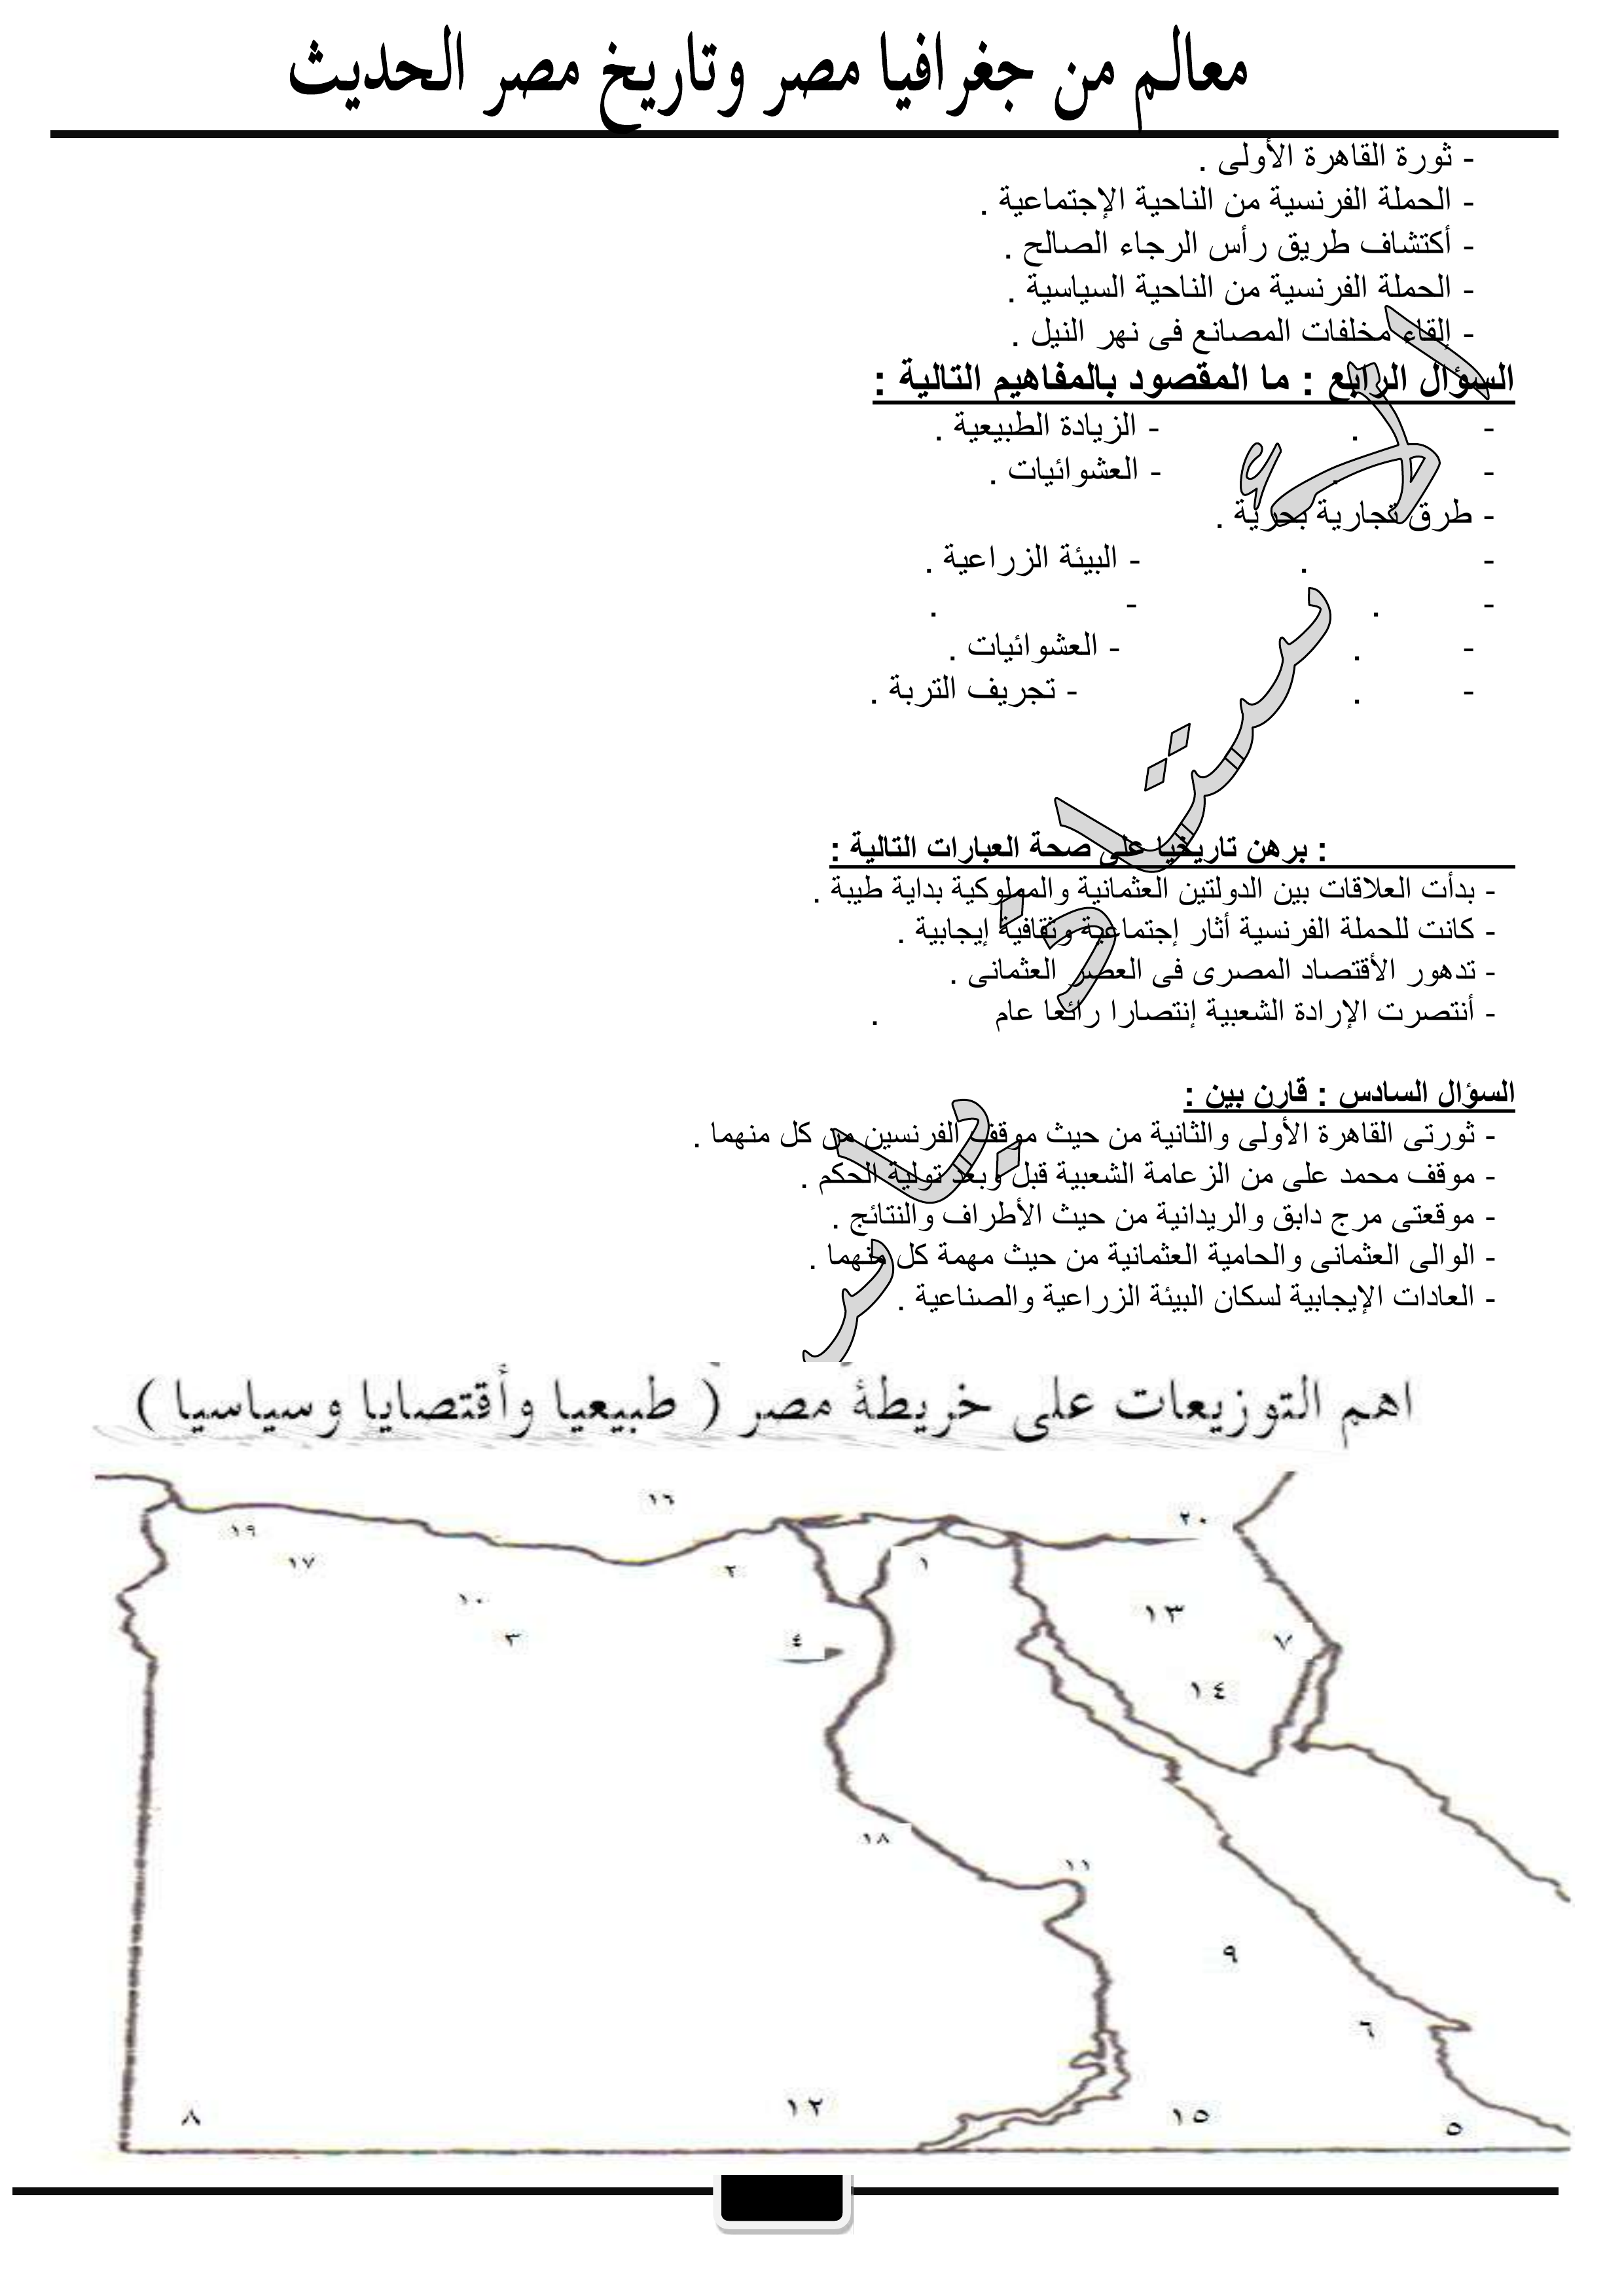 معالم من جغرافيا مصر وتاريخ مصر الحديث
- ثورة القاهرة الأولى .
- الحملة الفرنسية من الناحية الإجتماعية .
- أكتشاف طريق رأس الرجاء الصالح .
- الحملة الفرنسية من الناحية السياسية .
- إلقاء مخلفات المصانع فى نهر النيل .
السؤال الرابع : ما المقصود بالمفاهيم التالية :
- . - الزيادة الطبيعية .
- . - العشوائيات .
- طرق تجارية بحرية .
- . - البيئة الزراعية .
- . - .
- . - العشوائيات .
- . - تجريف التربة .
: برهن تاريخيا على صحة العبارات التالية :
- بدأت العلاقات بين الدولتين العثمانية والمملوكية بداية طيبة .
- كانت للحملة الفرنسية أثار إجتماعية وثقافية إيجابية .
- تدهور الأقتصاد المصرى فى العصر العثمانى .
- أنتصرت الإرادة الشعبية إنتصارا رائعا عام .
السؤال السادس : قارن بين :
- ثورتى القاهرة الأولى والثانية من حيث موقف الفرنسين من كل منهما .
- موقف محمد على من الزعامة الشعبية قبل وبعد تولية الحكم .
- موقعتى مرج دابق والريدانية من حيث الأطراف والنتائج .
- الوالى العثمانى والحامية العثمانية من حيث مهمة كل منهما .
- العادات الإيجابية لسكان البيئة الزراعية والصناعية .
اهم التوزيعات على خريطة مصر ( طبيعيا وأقتصايا وسياسيا )
١٦
٢٠
١٩
١٧
٢
١
١٠
١٣
٣
٤
٧
١٤
١٨
١١
٩
٦
٨
١٢
١٥
٥